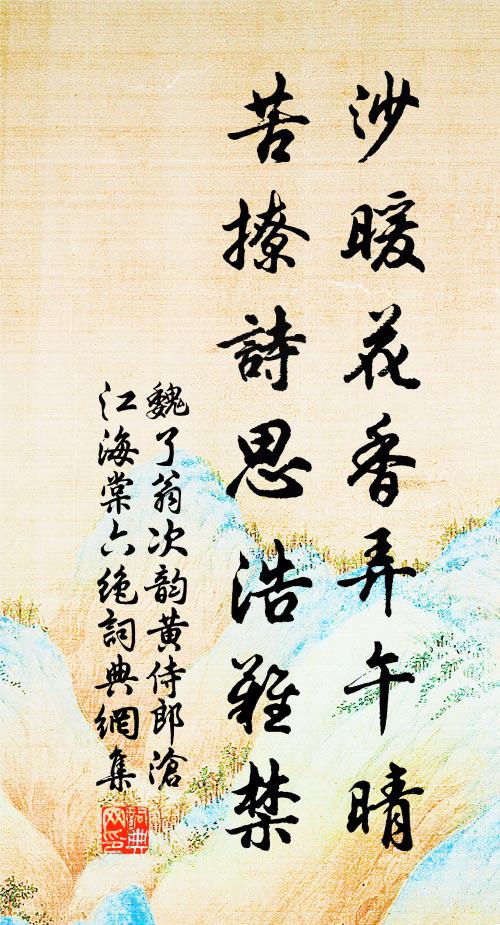 沙暖花香弄午晴
苦撩詩思浩難禁
魏了翁次韵黄侍郎滄
江海棠六絶詞典網集
詞典
网印